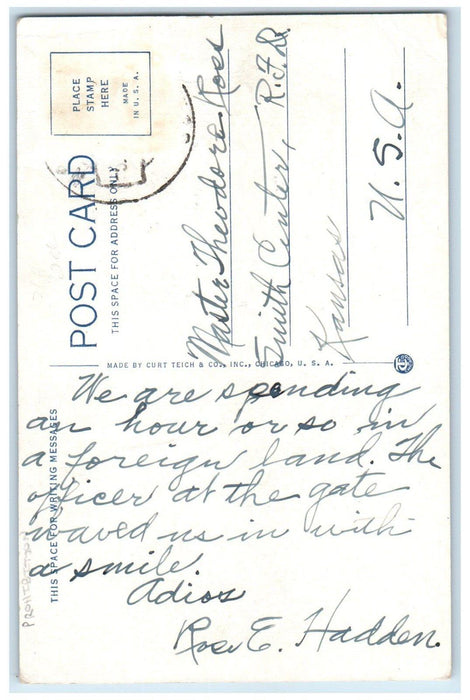 PLACE
STAMP
HERE
MADE
IN U. S. A.
POST CARD
THIS SPACE FOR ADDRESS ONLY
Master Theodore Roes
Smith Center, R.F.D.
Kansas
U.S.A.
MADE BY CURT TEICH & CO., INC., CHICAGO, U. S. A.
THIS SPACE FOR WRITING MESSAGES
We are spending
an hour or so in
a foreign land. The
officer at the gate
waved us in with
a smile.
Adios
Rose E. Hadden.
PROHIBITION